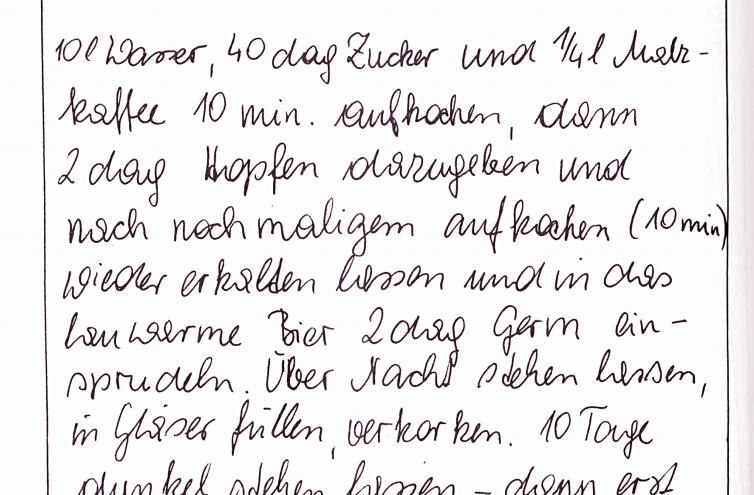 10 l Wasser, 40 dag Zucker und 1/4 l Malz-
kaffee 10 min. aufkochen, dann
2 dag Hopfen dazugeben und
nach nochmaligem aufkochen (10 min)
wieder erkalten lassen und in das
lauwarme Bier 2 dag Germ ein-
sprudeln. Über Nacht stehen lassen,
in Gläser füllen, verkorken. 10 Tage
dunkel stehen lassen - dann erst